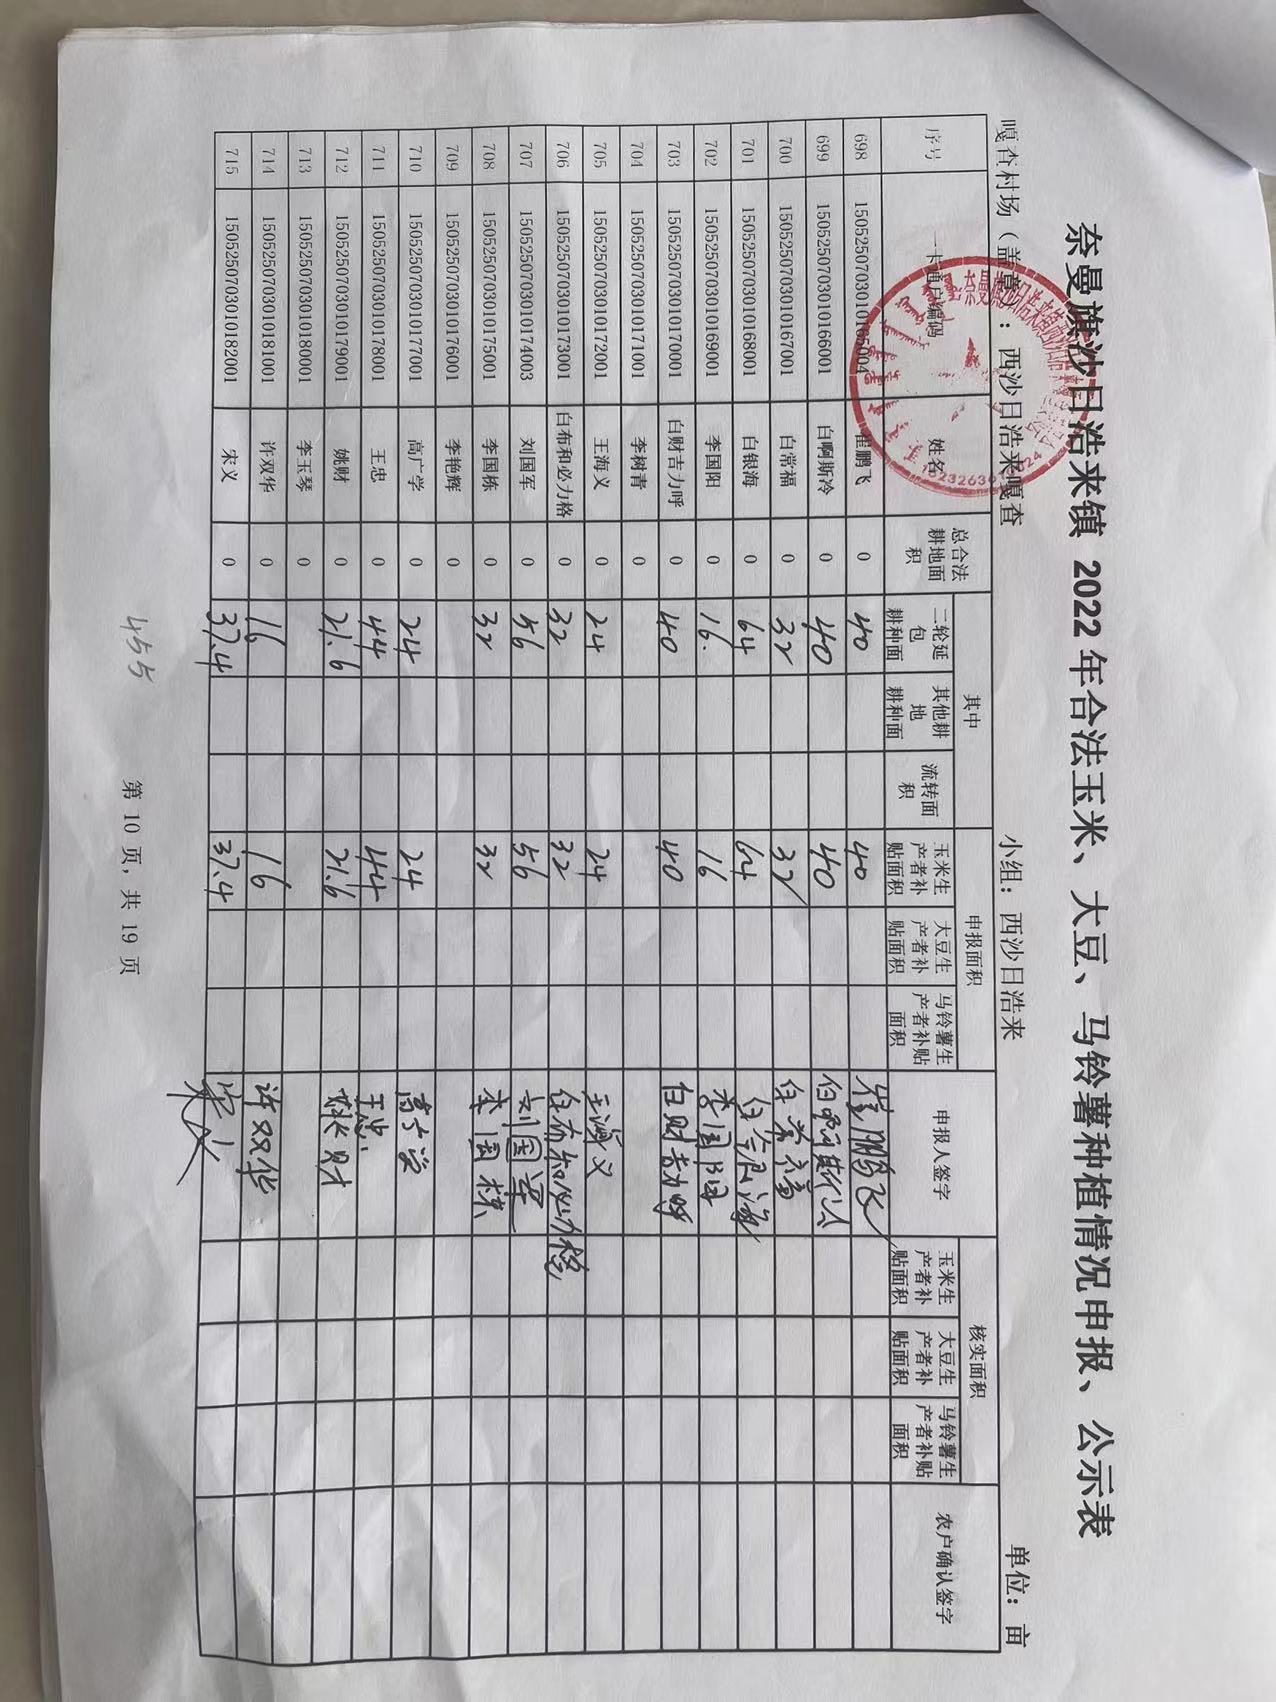 奈曼旗沙日浩来镇 2022 年合法玉米、大豆、马铃薯种植情况申报、公示表
嘎查村场（盖章）：西沙日浩来嘎查 小组：西沙日浩来 单位：亩
序号 一卡通户编码 姓名 总合法耕地面积 其中 申报面积 申报人签字 核实面积 农户确认签字
二轮延包耕种面 其他耕地耕种面 流转面积 玉米生产者补贴面积 大豆生产者补贴面积 马铃薯生产者补贴面积 玉米生产者补贴面积 大豆生产者补贴面积 马铃薯生产者补贴面积
698 1505250703010165004 崔鹏飞 0 40 40 崔鹏飞
699 1505250703010166001 白啊斯冷 0 40 40 白啊斯冷
700 1505250703010167001 白常福 0 32 32 白常福
701 1505250703010168001 白银海 0 64 64 白银海
702 1505250703010169001 李国阳 0 16. 16 李国阳
703 1505250703010170001 白财吉力呼 0 40 40 白财吉力呼
704 1505250703010171001 李树青 0
705 1505250703010172001 王海义 0 24 24 王海义
706 1505250703010173001 白布和必力格 0 32 32 白布和必力格
707 1505250703010174003 刘国军 0 56 56 刘国军
708 1505250703010175001 李国栋 0 32 32 李国栋
709 1505250703010176001 李艳辉 0
710 1505250703010177001 高广学 0 24 24 高广学
711 1505250703010178001 王忠 0 44 44 王忠
712 1505250703010179001 姚财 0 21.6 21.6 姚财
713 1505250703010180001 李玉琴 0
714 1505250703010181001 许双华 0 16 16 许双华
715 1505250703010182001 宋义 0 37.4 37.4 宋义
455
第 10 页，共 19 页